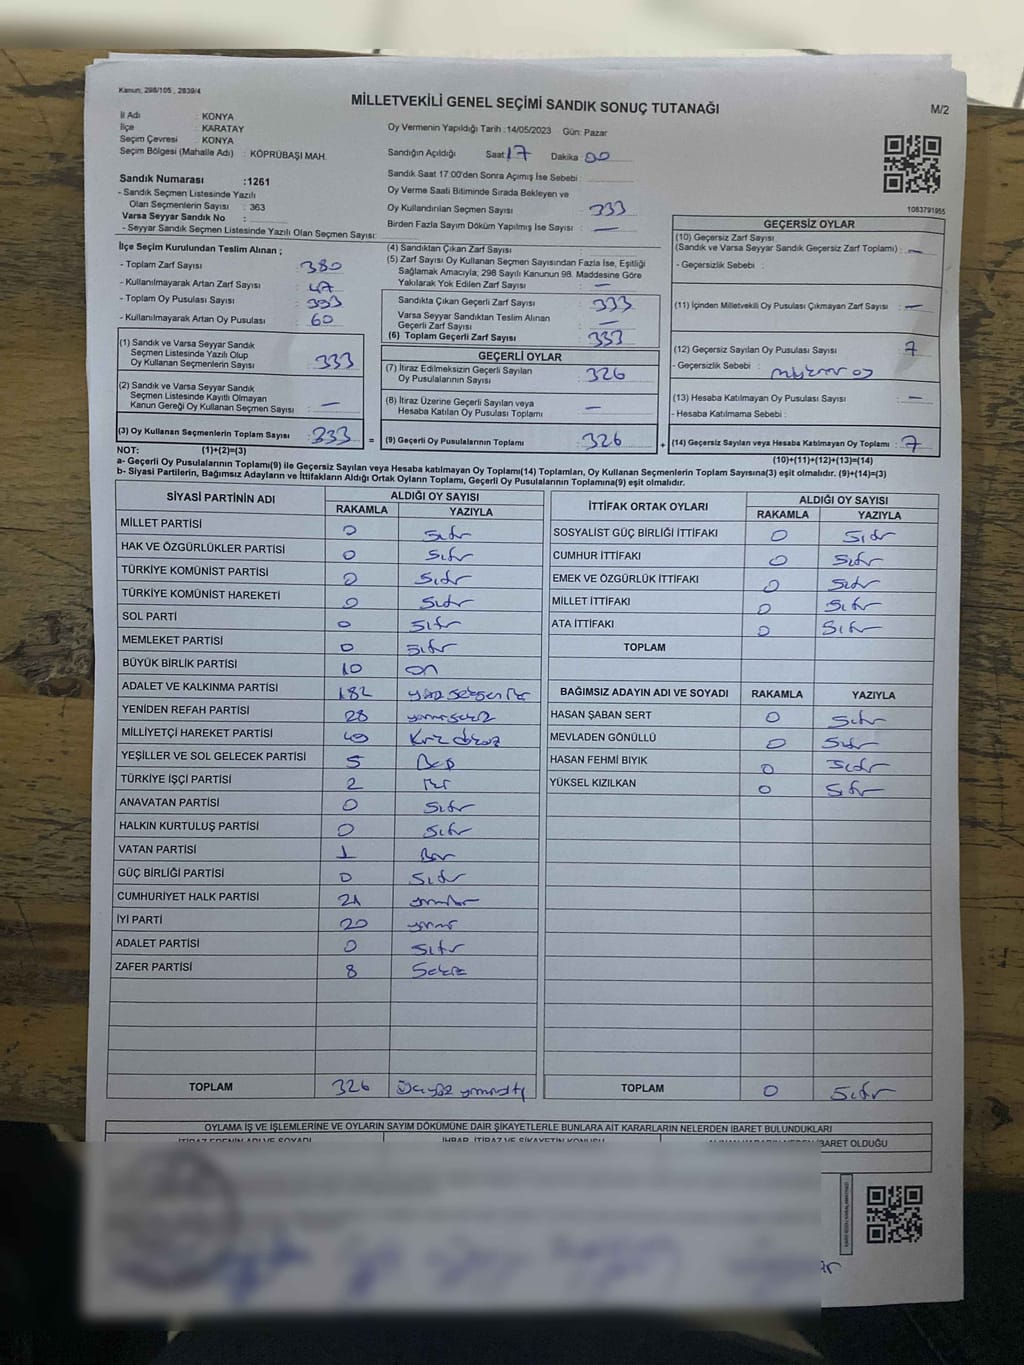 Kanun; 298/105 , 2839/4
MİLLETVEKİLİ GENEL SEÇİMİ SANDIK SONUÇ TUTANAĞI
M/2
İl Adı : KONYA
İlçe : KARATAY
Seçim Çevresi : KONYA
Seçim Bölgesi (Mahalle Adı) : KÖPRÜBAŞI MAH.
Sandık Numarası :1261
- Sandık Seçmen Listesinde Yazılı
Olan Seçmenlerin Sayısı : 363
Varsa Seyyar Sandık No :
- Seyyar Sandık Seçmen Listesinde Yazılı Olan Seçmen Sayısı:
Oy Vermenin Yapıldığı Tarih :14/05/2023 Gün: Pazar
Sandığın Açıldığı Saat 17 Dakika 00
Sandık Saat 17:00'den Sonra Açımış İse Sebebi
Oy Verme Saati Bitiminde Sırada Bekleyen ve
Oy Kullandırılan Seçmen Sayısı : 333
Birden Fazla Sayım Döküm Yapılmış İse Sayısı : —
1083791955
İlçe Seçim Kurulundan Teslim Alınan ;
- Toplam Zarf Sayısı : 380
- Kullanılmayarak Artan Zarf Sayısı : 47
- Toplam Oy Pusulası Sayısı : 393
- Kullanılmayarak Artan Oy Pusulası : 60
(1) Sandık ve Varsa Seyyar Sandık
Seçmen Listesinde Yazılı Olup
Oy Kullanan Seçmenlerin Sayısı : 333
(2) Sandık ve Varsa Seyyar Sandık
Seçmen Listesinde Kayıtlı Olmayan
Kanun Gereği Oy Kullanan Seçmen Sayısı : —
(3) Oy Kullanan Seçmenlerin Toplam Sayısı : 333 =
(4) Sandıktan Çıkan Zarf Sayısı :
(5) Zarf Sayısı Oy Kullanan Seçmen Sayısından Fazla İse, Eşitliği
Sağlamak Amacıyla; 298 Sayılı Kanunun 98. Maddesine Göre
Yakılarak Yok Edilen Zarf Sayısı : —
Sandıkta Çıkan Geçerli Zarf Sayısı : 333
Varsa Seyyar Sandıktan Teslim Alınan
Geçerli Zarf Sayısı : —
(6) Toplam Geçerli Zarf Sayısı : 333
GEÇERLİ OYLAR
(7) İtiraz Edilmeksizin Geçerli Sayılan
Oy Pusulalarının Sayısı : 326
(8) İtiraz Üzerine Geçerli Sayılan veya
Hesaba Katılan Oy Pusulası Toplamı : —
(9) Geçerli Oy Pusulalarının Toplamı : 326 +
GEÇERSİZ OYLAR
(10) Geçersiz Zarf Sayısı
(Sandık ve Varsa Seyyar Sandık Geçersiz Zarf Toplamı) : —
- Geçersizlik Sebebi :
(11) İçinden Milletvekili Oy Pusulası Çıkmayan Zarf Sayısı : —
(12) Geçersiz Sayılan Oy Pusulası Sayısı : 7
- Geçersizlik Sebebi :
(13) Hesaba Katılmayan Oy Pusulası Sayısı : —
- Hesaba Katılmama Sebebi :
(14) Geçersiz Sayılan veya Hesaba Katılmayan Oy Toplamı : 7
NOT: (1)+(2)=(3)
(10)+(11)+(12)+(13)=(14)
a- Geçerli Oy Pusulalarının Toplamı(9) ile Geçersiz Sayılan veya Hesaba katılmayan Oy Toplamı(14) Toplamları, Oy Kullanan Seçmenlerin Toplam Sayısına(3) eşit olmalıdır. (9)+(14)=(3)
b- Siyasi Partilerin, Bağımsız Adayların ve İttifakların Aldığı Ortak Oyların Toplamı, Geçerli Oy Pusulalarının Toplamına(9) eşit olmalıdır.
SİYASİ PARTİNİN ADI ALDIĞI OY SAYISI
RAKAMLA YAZIYLA
MİLLET PARTİSİ 0 Sıfır
HAK VE ÖZGÜRLÜKLER PARTİSİ 0 Sıfır
TÜRKİYE KOMÜNİST PARTİSİ 0 Sıfır
TÜRKİYE KOMÜNİST HAREKETİ 0 Sıfır
SOL PARTİ 0 Sıfır
MEMLEKET PARTİSİ 0 Sıfır
BÜYÜK BİRLİK PARTİSİ 10 on
ADALET VE KALKINMA PARTİSİ 182 yüz seksen iki
YENİDEN REFAH PARTİSİ 28 yirmi sekiz
MİLLİYETÇİ HAREKET PARTİSİ 49 Kırk dokuz
YEŞİLLER VE SOL GELECEK PARTİSİ 5 Beş
TÜRKİYE İŞÇİ PARTİSİ 2 iki
ANAVATAN PARTİSİ 0 Sıfır
HALKIN KURTULUŞ PARTİSİ 0 Sıfır
VATAN PARTİSİ 1 Bir
GÜÇ BİRLİĞİ PARTİSİ 0 Sıfır
CUMHURİYET HALK PARTİSİ 21 yirmibir
İYİ PARTİ 20 yirmi
ADALET PARTİSİ 0 Sıfır
ZAFER PARTİSİ 8 Sekiz
TOPLAM 326 Üçyüz yirmialtı
İTTİFAK ORTAK OYLARI ALDIĞI OY SAYISI
RAKAMLA YAZIYLA
SOSYALİST GÜÇ BİRLİĞİ İTTİFAKI 0 Sıfır
CUMHUR İTTİFAKI 0 Sıfır
EMEK VE ÖZGÜRLÜK İTTİFAKI 0 Sıfır
MİLLET İTTİFAKI 0 Sıfır
ATA İTTİFAKI 0 Sıfır
TOPLAM
BAĞIMSIZ ADAYIN ADI VE SOYADI RAKAMLA YAZIYLA
HASAN ŞABAN SERT 0 Sıfır
MEVLADEN GÖNÜLLÜ 0 Sıfır
HASAN FEHMİ BIYIK 0 Sıfır
YÜKSEL KIZILKAN 0 Sıfır
TOPLAM 0 Sıfır
OYLAMA İŞ VE İŞLEMLERİNE VE OYLARIN SAYIM DÖKÜMÜNE DAİR ŞİKAYETLERLE BUNLARA AİT KARARLARIN NELERDEN İBARET BULUNDUKLARI
İTİRAZ EDENİN ADI VE SOYADI İHBAR, İTİRAZ VE ŞİKAYETİN KONUSU İBARET OLDUĞU